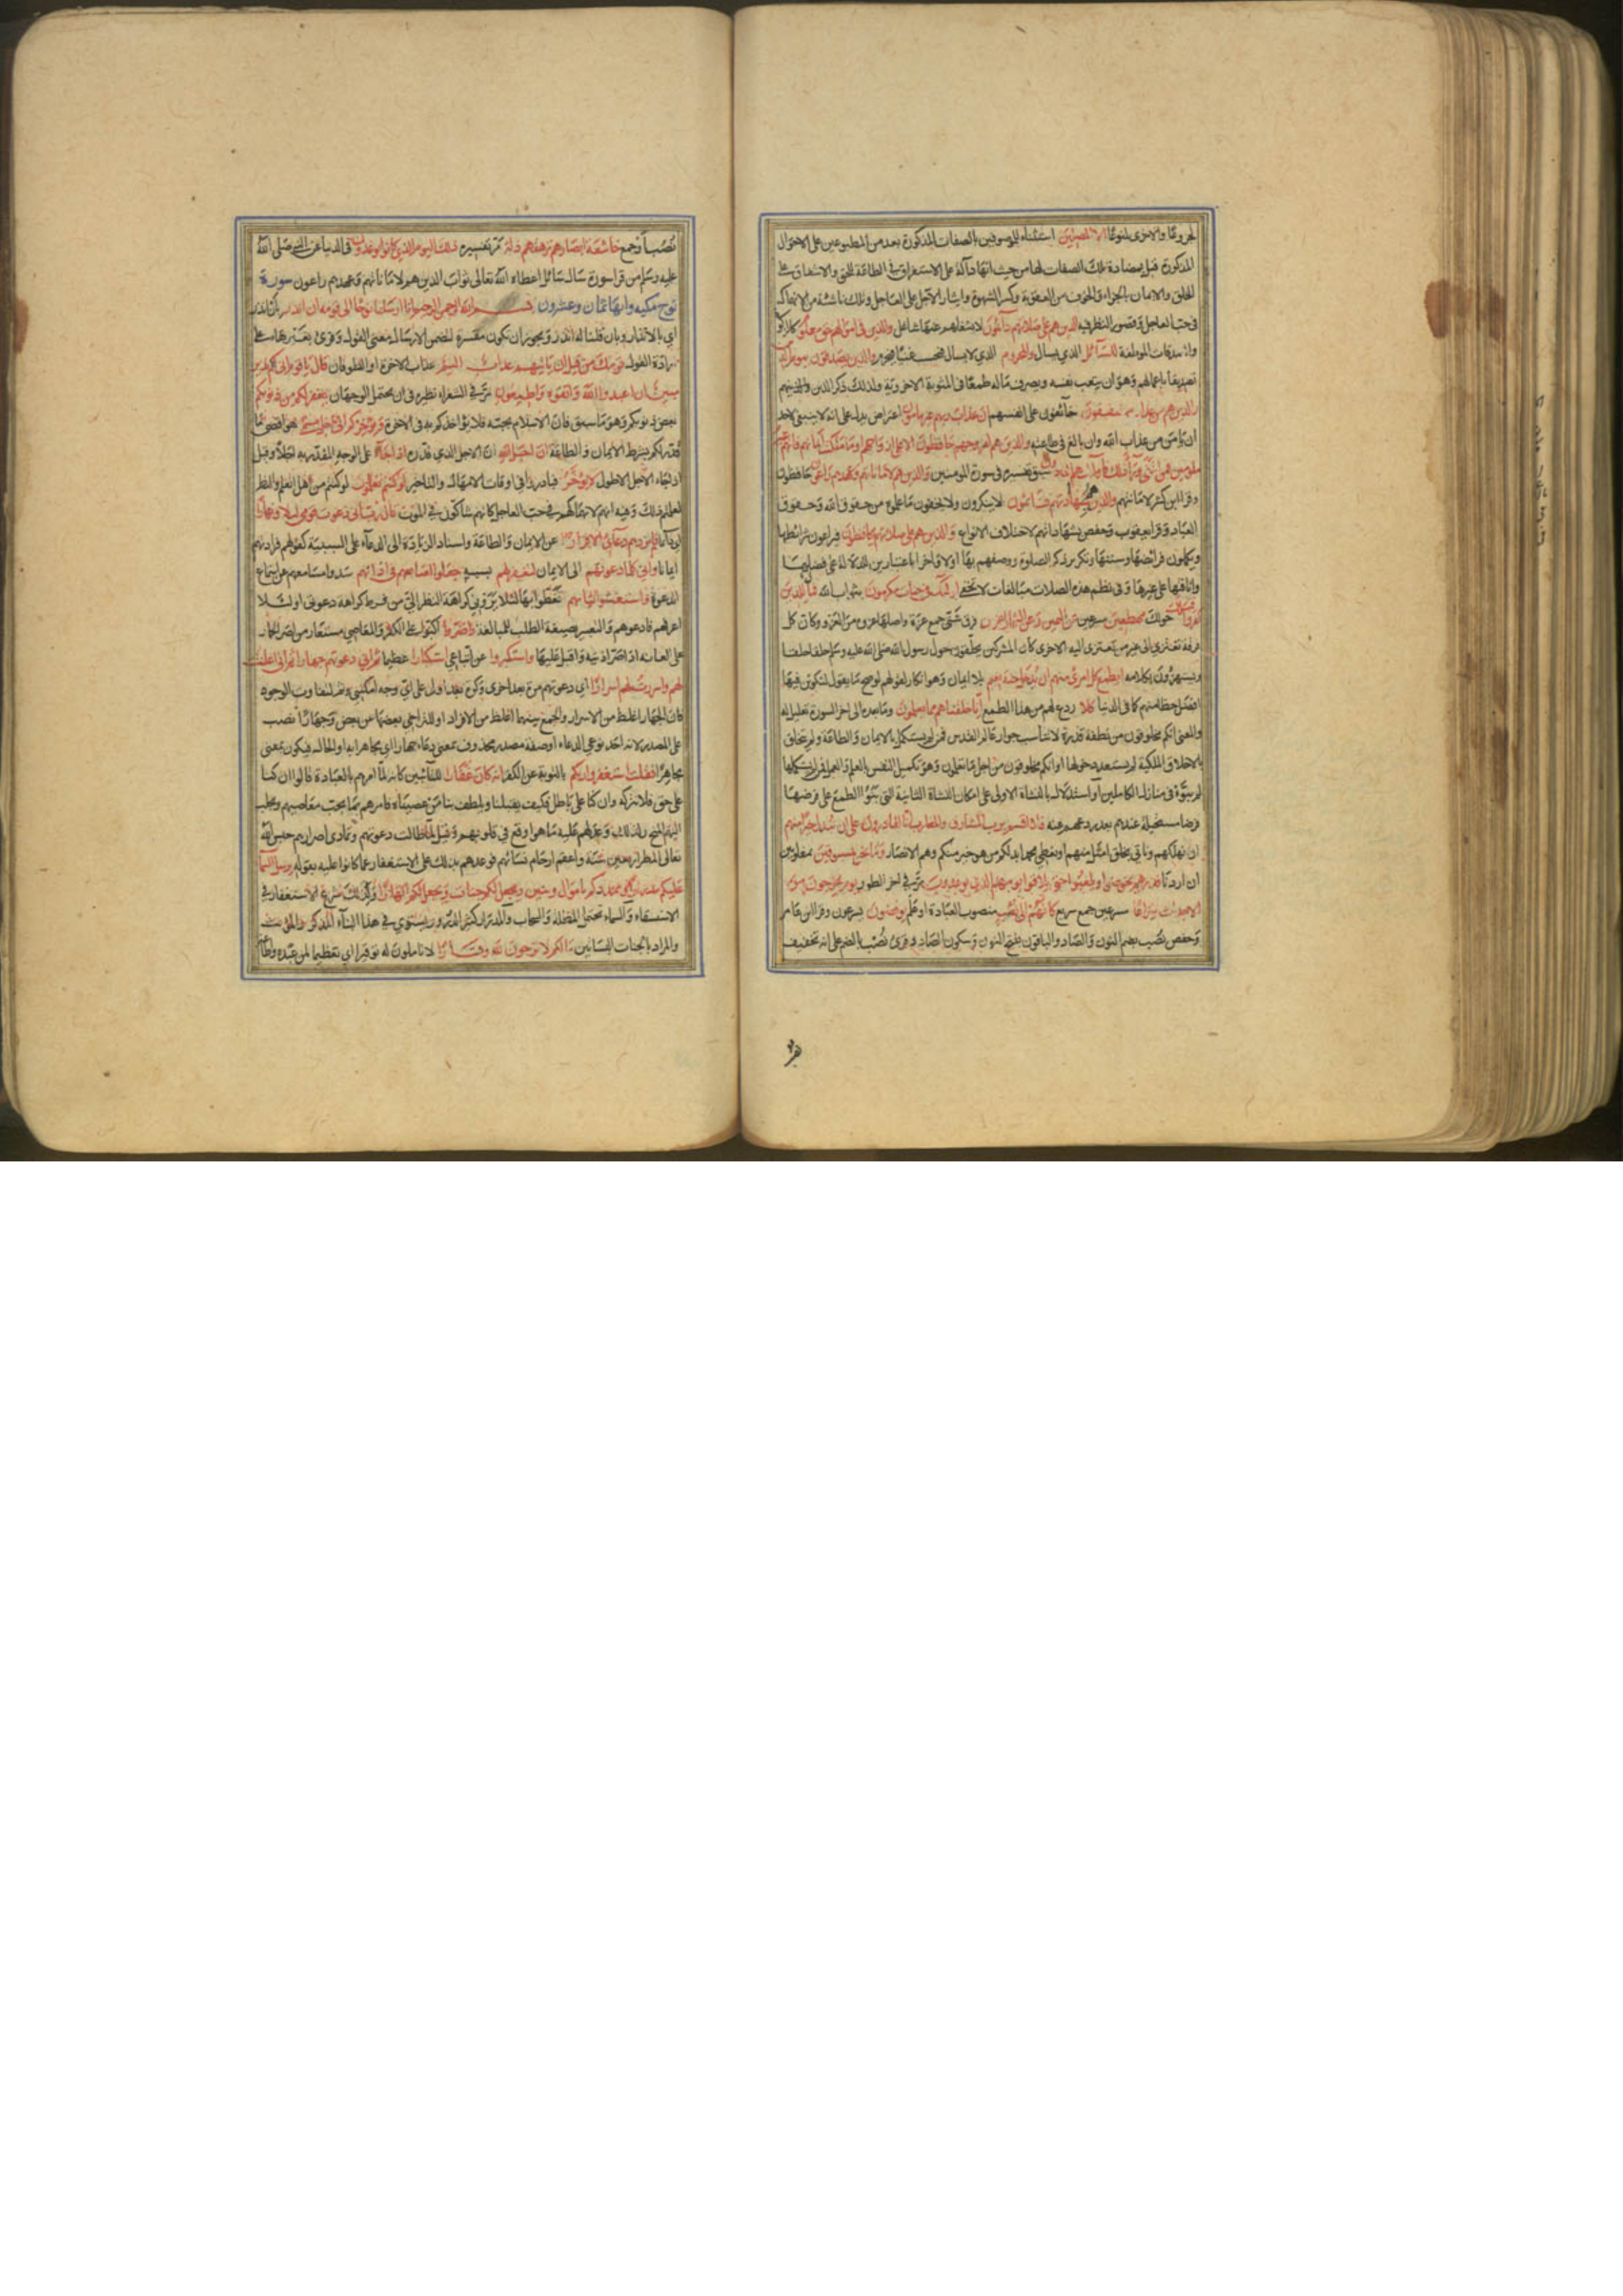 لجزوعا والاخرى لمنوعا الا المصلين استثناء للموصوفين بالصفات المذكورة بعد من المطبوعين على الاحوال
المذكورة قبل لمضادة تلك الصفات لها من حيث انها دالة على الاستغراق في الطاعة للحق والاشفاق على
الخلق والايمان بالجزاء والخوف من العقوبة وكسر الشهوة وايثار الآجل على العاجل وتلك ناشئة من الانهماك
في حب العاجل وقصور النظر عليه الذين هم على صلاتهم دائمون لا يشغلهم عنها شاغل والذين في اموالهم حق معلوم كالزكوة
والصدقات الموظفة للسائل الذي يسال والمحروم الذي لا يسال فيحسب غنيا فيحرم والذين يصدقون بيوم الدين
تصديقا باعمالهم وهو ان يتعب نفسه ويصرف ماله طمعا في المثوبة الاخروية ولذلك ذكر الدين والذين هم
من عذاب ربهم مشفقون خائفون على انفسهم ان عذاب ربهم غير مامون اعتراض يدل على انه لا ينبغي لاحد
ان يامن من عذاب الله وان بالغ في طاعته والذين هم لفروجهم حافظون الا على ازواجهم او ما ملكت ايمانهم فانهم غير
ملومين فمن ابتغى وراء ذلك فاولئك هم العادون سبق تفسيره في سورة المومنين والذين هم لاماناتهم وعهدهم راعون حافظون
وقرا ابن كثير لامانتهم والذين هم بشهادتهم قائمون لا ينكرون ولا يخفون ما علموه من حقوق الله وحقوق
العباد وقرا يعقوب وحفص بشهاداتهم لاختلاف الانواع والذين هم على صلاتهم يحافظون فيراعون شرائطها
ويكملون فرائضها وسننها وتكرير ذكر الصلوة ووصفهم بها اولا واخرا باعتبارين للدلالة على فضلها
وانافتها على غيرها وفي نظم هذه الصلات مبالغات لا تخفى اولئك في جنات مكرمون بثواب الله فمال الذين
كفروا قبلك حولك مهطعين مسرعين عن اليمين وعن الشمال عزين فرق شتى جمع عزة واصلها عزوه من العزو وكان كل
فرقة تعتزي الى غير من تعتزي اليه الاخرى كان المشركون يحلقون حول رسول الله صلى الله عليه وسلم حلقا حلقا
ويستهزؤن بكلامه ايطمع كل امرئ منهم ان يدخل جنة نعيم بلا ايمان وهو انكار لقولهم لو صح ما يقول لنكون فيها
افضل حظا منهم كما في الدنيا كلا ردع لهم من هذا الطمع انا خلقناهم مما يعلمون
والمعنى انكم مخلوقون من نطفة قذرة لا تناسب عالم القدس فمن لم يستكمل بالايمان والطاعة ولم يتخلق
بالاخلاق الملكية لم يستعد دخولها او انكم مخلوقون من اجل ما تعلمون وهو تكميل النفس بالعلم والعمل فمن لم يستكملها
لم يتبوء في منازل الكاملين او استدلال بالنشاة الاولى على امكان النشاة الثانية التي بنوا الطمع على فرضها
فرضا مستحيلا عندهم بعد ردعهم عنه فلا اقسم برب المشارق والمغارب انا لقادرون على ان نبدل خيرا منهم
ان نهلكهم وناتي بخلق امثل منهم او نعطي محمدا بدلكم من هو خير منكم وهم الانصار وما نحن بمسبوقين بمغلوبين
ان اردنا فذرهم يخوضوا ويلعبوا حتى يلاقوا يومهم الذي يوعدون مر في اخر الطور يوم يخرجون من
الاجداث سراعا مسرعين جمع سريع كانهم الى نصب منصوب للعبادة او علم يوفضون يسرعون وقرا ابن عامر
وحفص نصب بضم النون والصاد والباقون بفتح النون وسكون الصاد وقرئ نصب بالضم على انه تخفيف
نصب او جمع خاشعة ابصارهم ترهقهم ذلة مر تفسيره ذلك اليوم الذي كانوا يوعدون في الدنيا عن النبي صلى الله
عليه وسلم من قرا سورة سال سائل اعطاه الله تعالى ثواب الذين هم لاماناتهم وعهدهم راعون سورة
نوح مكيه وايها ثمان وعشرون بسم الله الرحمن الرحيم انا ارسلنا نوحا الى قومه ان انذر بان انذر
اي بالانذار وبان قلنا له انذر ويجوز ان تكون مفسرة لتضمن الارسال معنى القول وقرئ بغيرها على
ارادة القول قومك من قبل ان ياتيهم عذاب اليم عذاب الاخرة او الطوفان قال يا قوم اني لكم نذير
مبين ان اعبدوا الله واتقوه واطيعون مر في الشعراء نظيره في ان يحتمل الوجهان يغفر لكم من ذنوبكم
بعض ذنوبكم وهو ما سبق فان الاسلام يجبه فلا يؤاخذكم به في الاخرة ويؤخركم الى اجل مسمى هو اقصى ما
قدر لكم بشرط الايمان والطاعة ان اجل الله ان الاجل الذي قدره اذا جاء على الوجه المقدر به اجلا وقيل
اذا جاء الاجل الاطول لا يؤخر فبادروا في اوقات الامهال والتاخير لو كنتم تعلمون لو كنتم من اهل العلم والنظر
لعلمتم ذلك وفيه انهم لانهماكهم في حب العاجل كانهم شاكون في الموت قال رب اني دعوت قومي ليلا ونهارا
اي دائما فلم يزدهم دعائي الا فرارا عن الايمان والطاعة واسناد الزيادة الى الدعاء على السببية كقوله فزادتهم
ايمانا واني كلما دعوتهم الى الايمان لتغفر لهم بسببه جعلوا اصابعهم في اذانهم سدوا مسامعهم عن استماع
الدعوة واستغشوا ثيابهم تغطوا بها لئلا يروني كراهة النظر الي من فرط كراهة دعوتي او لئلا
اعرفهم فادعوهم والتعبير بصيغة الطلب للمبالغة واصروا اكبوا على الكفر والمعاصي مستعار من اصر الحمار
على العانه اذا صر اذنيه واقبل عليها واستكبروا عن اتباعي استكبارا عظيما ثم اني دعوتهم جهارا ثم اني اعلنت
لهم واسررت لهم اسرارا اي دعوتهم مرة بعد اخرى وكرة بعد اولى على اي وجه امكنني وثم لتفاوت الوجوه
فان الجهار اغلظ من الاسرار والجمع بينهما اغلظ من الافراد او لتراخي بعضها عن بعض وجهارا نصب
على المصدر لانه احد نوعي الدعاء او صفة مصدر محذوف بمعنى دعاء جهارا اي مجاهرا به او الحال فيكون بمعنى
مجاهرا فقلت استغفروا ربكم بالتوبة عن الكفر انه كان غفارا للتائبين كانه لما امرهم بالعبادة قالوا ان كنا
على حق فلا نتركه وان كنا على باطل فكيف يقبلنا ويلطف بنا من عصيناه فامرهم بما يجب معاصيهم ويجلب
اليهم المنح ولذلك وعدهم عليه ما هو اوقع في قلوبهم وقيل لما طالت دعوتهم وتمادى اصرارهم حبس الله
تعالى المطر اربعين سنة واعقم ارحام نسائهم فوعدهم بذلك على الاستغفار عما كانوا عليه بقوله يرسل السماء
عليكم مدرارا ويمددكم باموال وبنين ويجعل لكم جنات ويجعل لكم انهارا ولذلك شرع الاستغفار في
الاستسقاء والسماء تحتمل المظلة والسحاب والمدرار كثير الدرور ويستوي في هذا البناء المذكر والمؤنث
والمراد بالجنات البساتين ما لكم لا ترجون لله وقارا لا تاملون له توقيرا اي تعظيما لمن عبده واطاع